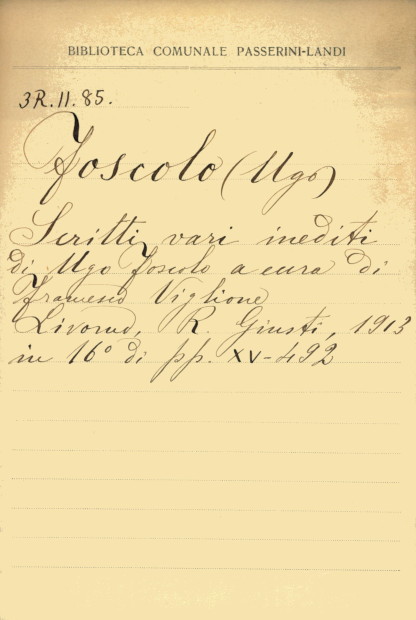 BIBLIOTECA COMUNALE PASSERINI-LANDI
3R.II.85.
Foscolo (Ugo)
Scritti vari inediti
di Ugo Foscolo a cura di
Francesco Viglione
Livorno, R. Giusti, 1913
in 16° di pp. XV-492